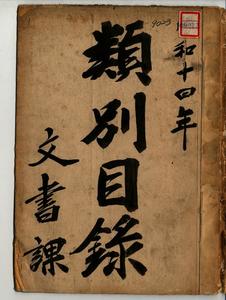 和十四年
類別目錄
文書課